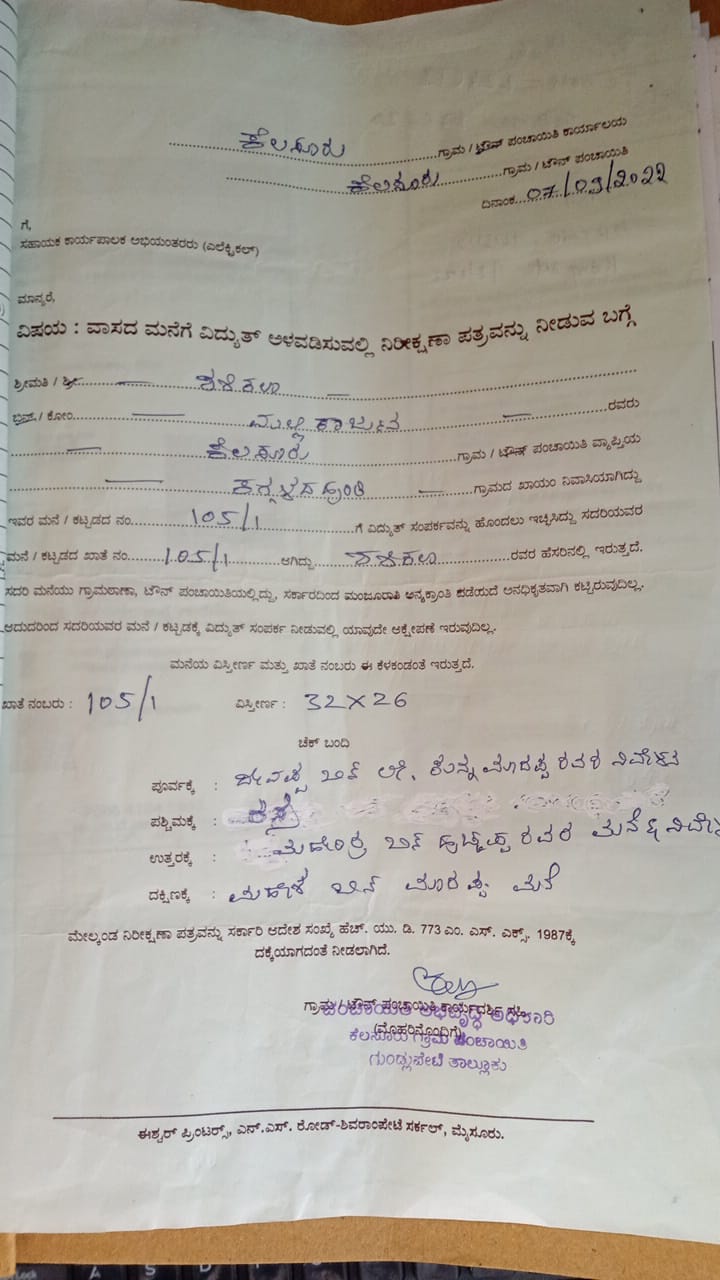 ಕೆಲಸೂರು ಗ್ರಾಮ / ಟೌನ್ ಪಂಚಾಯಿತಿ ಕಾರ್ಯಾಲಯ
ಕೆಲಸೂರು ಗ್ರಾಮ / ಟೌನ್ ಪಂಚಾಯಿತಿ
ದಿನಾಂಕ 07/09/2022
ಗೆ,
ಸಹಾಯಕ ಕಾರ್ಯಪಾಲಕ ಅಭಿಯಂತರರು (ಎಲೆಕ್ಟ್ರಿಕಲ್)
ಮಾನ್ಯರೆ,
ವಿಷಯ : ವಾಸದ ಮನೆಗೆ ವಿದ್ಯುತ್ ಅಳವಡಿಸುವಲ್ಲಿ ನಿರೀಕ್ಷಣಾ ಪತ್ರವನ್ನು ನೀಡುವ ಬಗ್ಗೆ
ಶ್ರೀಮತಿ / ಶ್ರೀ ಶಶಿಕಲಾ
ಬಿನ್ / ಕೋಂ ಮಲ್ಲಿಕಾರ್ಜುನ ರವರು
ಕೆಲಸೂರು ಗ್ರಾಮ / ಟೌನ್ ಪಂಚಾಯಿತಿ ವ್ಯಾಪ್ತಿಯ
ಕಗ್ಗಳದಹುಂಡಿ ಗ್ರಾಮದ ಖಾಯಂ ನಿವಾಸಿಯಾಗಿದ್ದು
ಇವರ ಮನೆ / ಕಟ್ಟಡದ ನಂ 105/1 ಗೆ ವಿದ್ಯುತ್ ಸಂಪರ್ಕವನ್ನು ಹೊಂದಲು ಇಚ್ಛಿಸಿದ್ದು ಸದರಿಯವರ
ಮನೆ / ಕಟ್ಟಡದ ಖಾತೆ ನಂ 105/1 ಆಗಿದ್ದು ಶಶಿಕಲಾ ರವರ ಹೆಸರಿನಲ್ಲಿ ಇರುತ್ತದೆ.
ಸದರಿ ಮನೆಯು ಗ್ರಾಮಠಾಣಾ, ಟೌನ್ ಪಂಚಾಯಿತಿಯಲ್ಲಿದ್ದು, ಸರ್ಕಾರದಿಂದ ಮಂಜೂರಾತಿ ಅನ್ಯಕ್ರಾಂತಿ ಪಡೆಯದೆ ಅನಧಿಕೃತವಾಗಿ ಕಟ್ಟಿರುವುದಿಲ್ಲ.
ಆದುದರಿಂದ ಸದರಿಯವರ ಮನೆ / ಕಟ್ಟಡಕ್ಕೆ ವಿದ್ಯುತ್ ಸಂಪರ್ಕ ನೀಡುವಲ್ಲಿ ಯಾವುದೇ ಆಕ್ಷೇಪಣೆ ಇರುವುದಿಲ್ಲ.
ಮನೆಯ ವಿಸ್ತೀರ್ಣ ಮತ್ತು ಖಾತೆ ನಂಬರು ಈ ಕೆಳಕಂಡಂತೆ ಇರುತ್ತದೆ.
ಖಾತೆ ನಂಬರು : 105/1 ವಿಸ್ತೀರ್ಣ : 32 X 26
ಚೆಕ್ ಬಂದಿ
ಪೂರ್ವಕ್ಕೆ : ಬಿನ್ ಮಾದಪ್ಪ ರವರ ನಿವೇಶನ
ಪಶ್ಚಿಮಕ್ಕೆ : ರಸ್ತೆ
ಉತ್ತರಕ್ಕೆ : ಮಹೇಂದ್ರ ಬಿನ್ ಪುಟ್ಟಪ್ಪ ರವರ ಮನೆ
ದಕ್ಷಿಣಕ್ಕೆ : ಮಹೇಶ ಬಿನ್ ಮಾರಪ್ಪ ಮನೆ
ಮೇಲ್ಕಂಡ ನಿರೀಕ್ಷಣಾ ಪತ್ರವನ್ನು ಸರ್ಕಾರಿ ಆದೇಶ ಸಂಖ್ಯೆ ಹೆಚ್. ಯು. ಡಿ. 773 ಎಂ. ಎಸ್. ಎಕ್ಸ್. 1987ಕ್ಕೆ
ದಕ್ಕೆಯಾಗದಂತೆ ನೀಡಲಾಗಿದೆ.
ಗ್ರಾಮ / ಟೌನ್ ಪಂಚಾಯಿತಿ ಕಾರ್ಯದರ್ಶಿ ಸಹಿ
ಪಂಚಾಯಿತಿ ಅಭಿವೃದ್ಧಿ ಅಧಿಕಾರಿ
(ಮೊಹರಿನೊಂದಿಗೆ)
ಕೆಲಸೂರು ಗ್ರಾಮ ಪಂಚಾಯಿತಿ
ಗುಂಡ್ಲುಪೇಟೆ ತಾಲ್ಲೂಕು
ಈಶ್ವರ್ ಪ್ರಿಂಟರ್ಸ್, ಎನ್.ಎಸ್. ರೋಡ್-ಶಿವರಾಂಪೇಟೆ ಸರ್ಕಲ್, ಮೈಸೂರು.